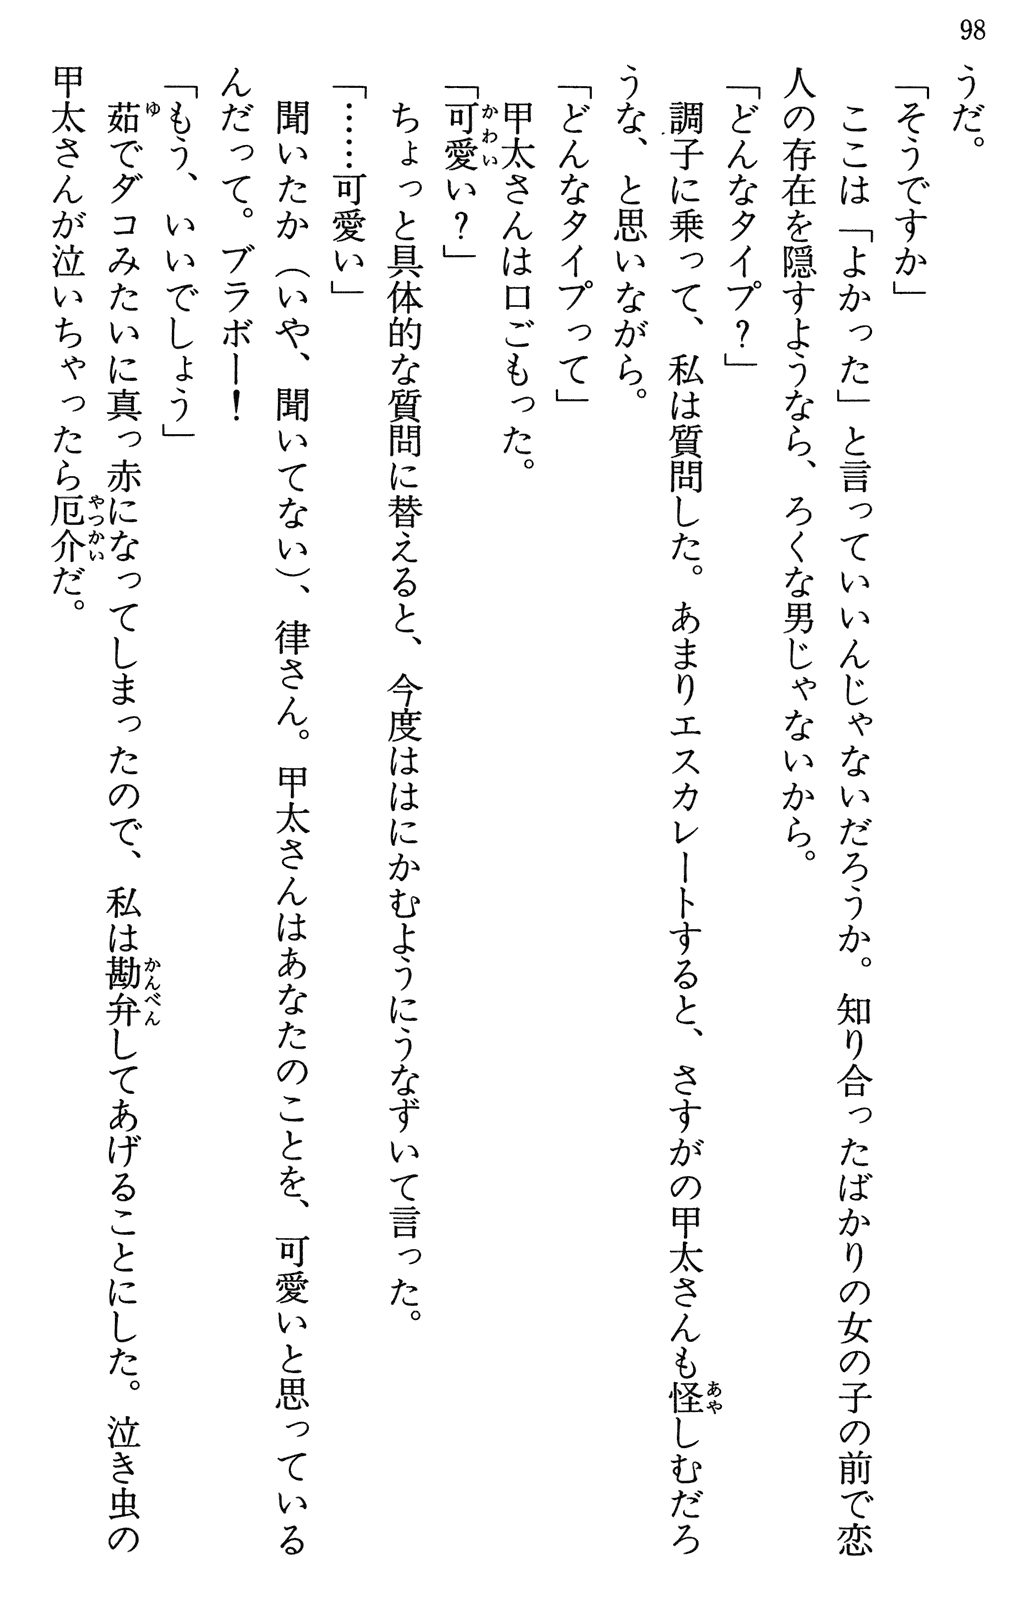 98
うだ。
「そうですか」
ここは「よかった」と言っていいんじゃないだろうか。知り合ったばかりの女の子の前で恋
人の存在を隠すようなら、ろくな男じゃないから。
「どんなタイプ？」
調子に乗って、私は質問した。あまりエスカレートすると、さすがの甲太さんも怪しむだろ
うな、と思いながら。
「どんなタイプって」
甲太さんは口ごもった。
「可愛い？」
ちょっと具体的な質問に替えると、今度ははにかむようにうなずいて言った。
「……可愛い」
聞いたか（いや、聞いてない）、律さん。甲太さんはあなたのことを、可愛いと思っている
んだって。ブラボー！
「もう、いいでしょう」
茹でダコみたいに真っ赤になってしまったので、私は勘弁してあげることにした。泣き虫の
甲太さんが泣いちゃったら厄介だ。